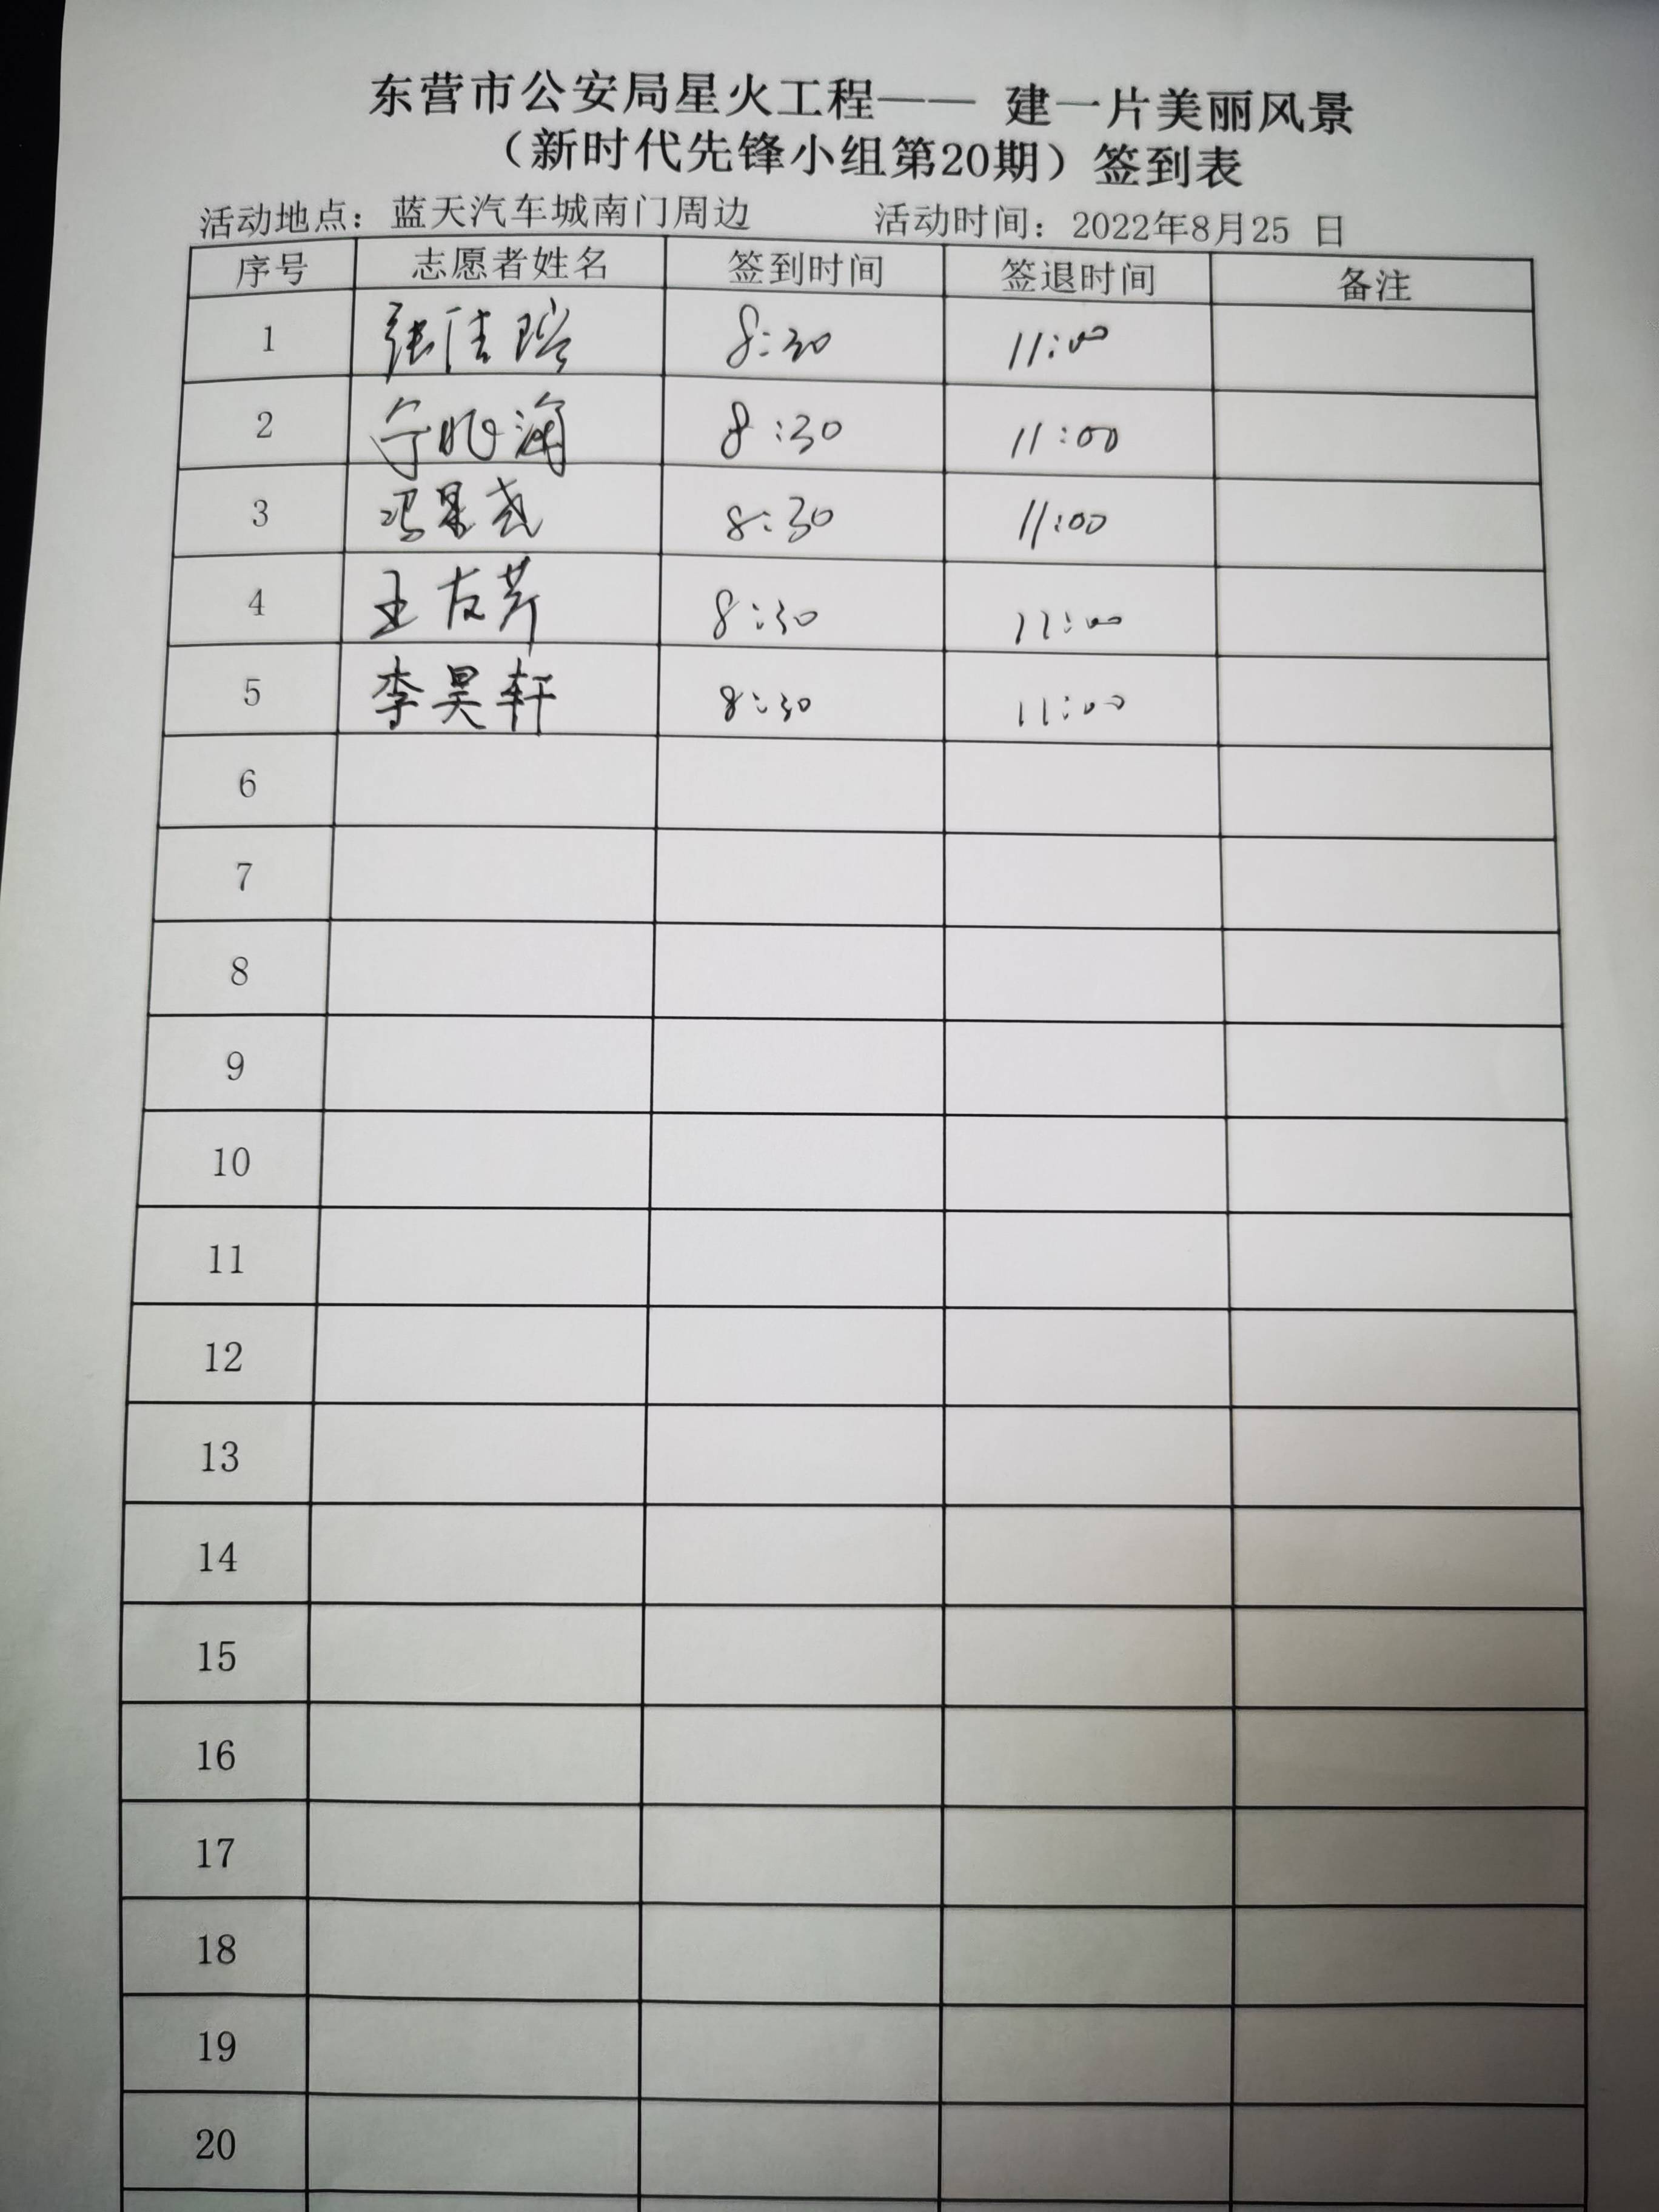 东营市公安局星火工程—— 建一片美丽风景
（新时代先锋小组第20期）签到表
活动地点：蓝天汽车城南门周边 活动时间：2022年8月25 日
序号 志愿者姓名 签到时间 签退时间 备注
1 张佳瑢 8:30 11:00
2 8:30 11:00
3 8:30 11:00
4 王友芹 8:30 11:00
5 李昊轩 8:30 11:00
6
7
8
9
10
11
12
13
14
15
16
17
18
19
20